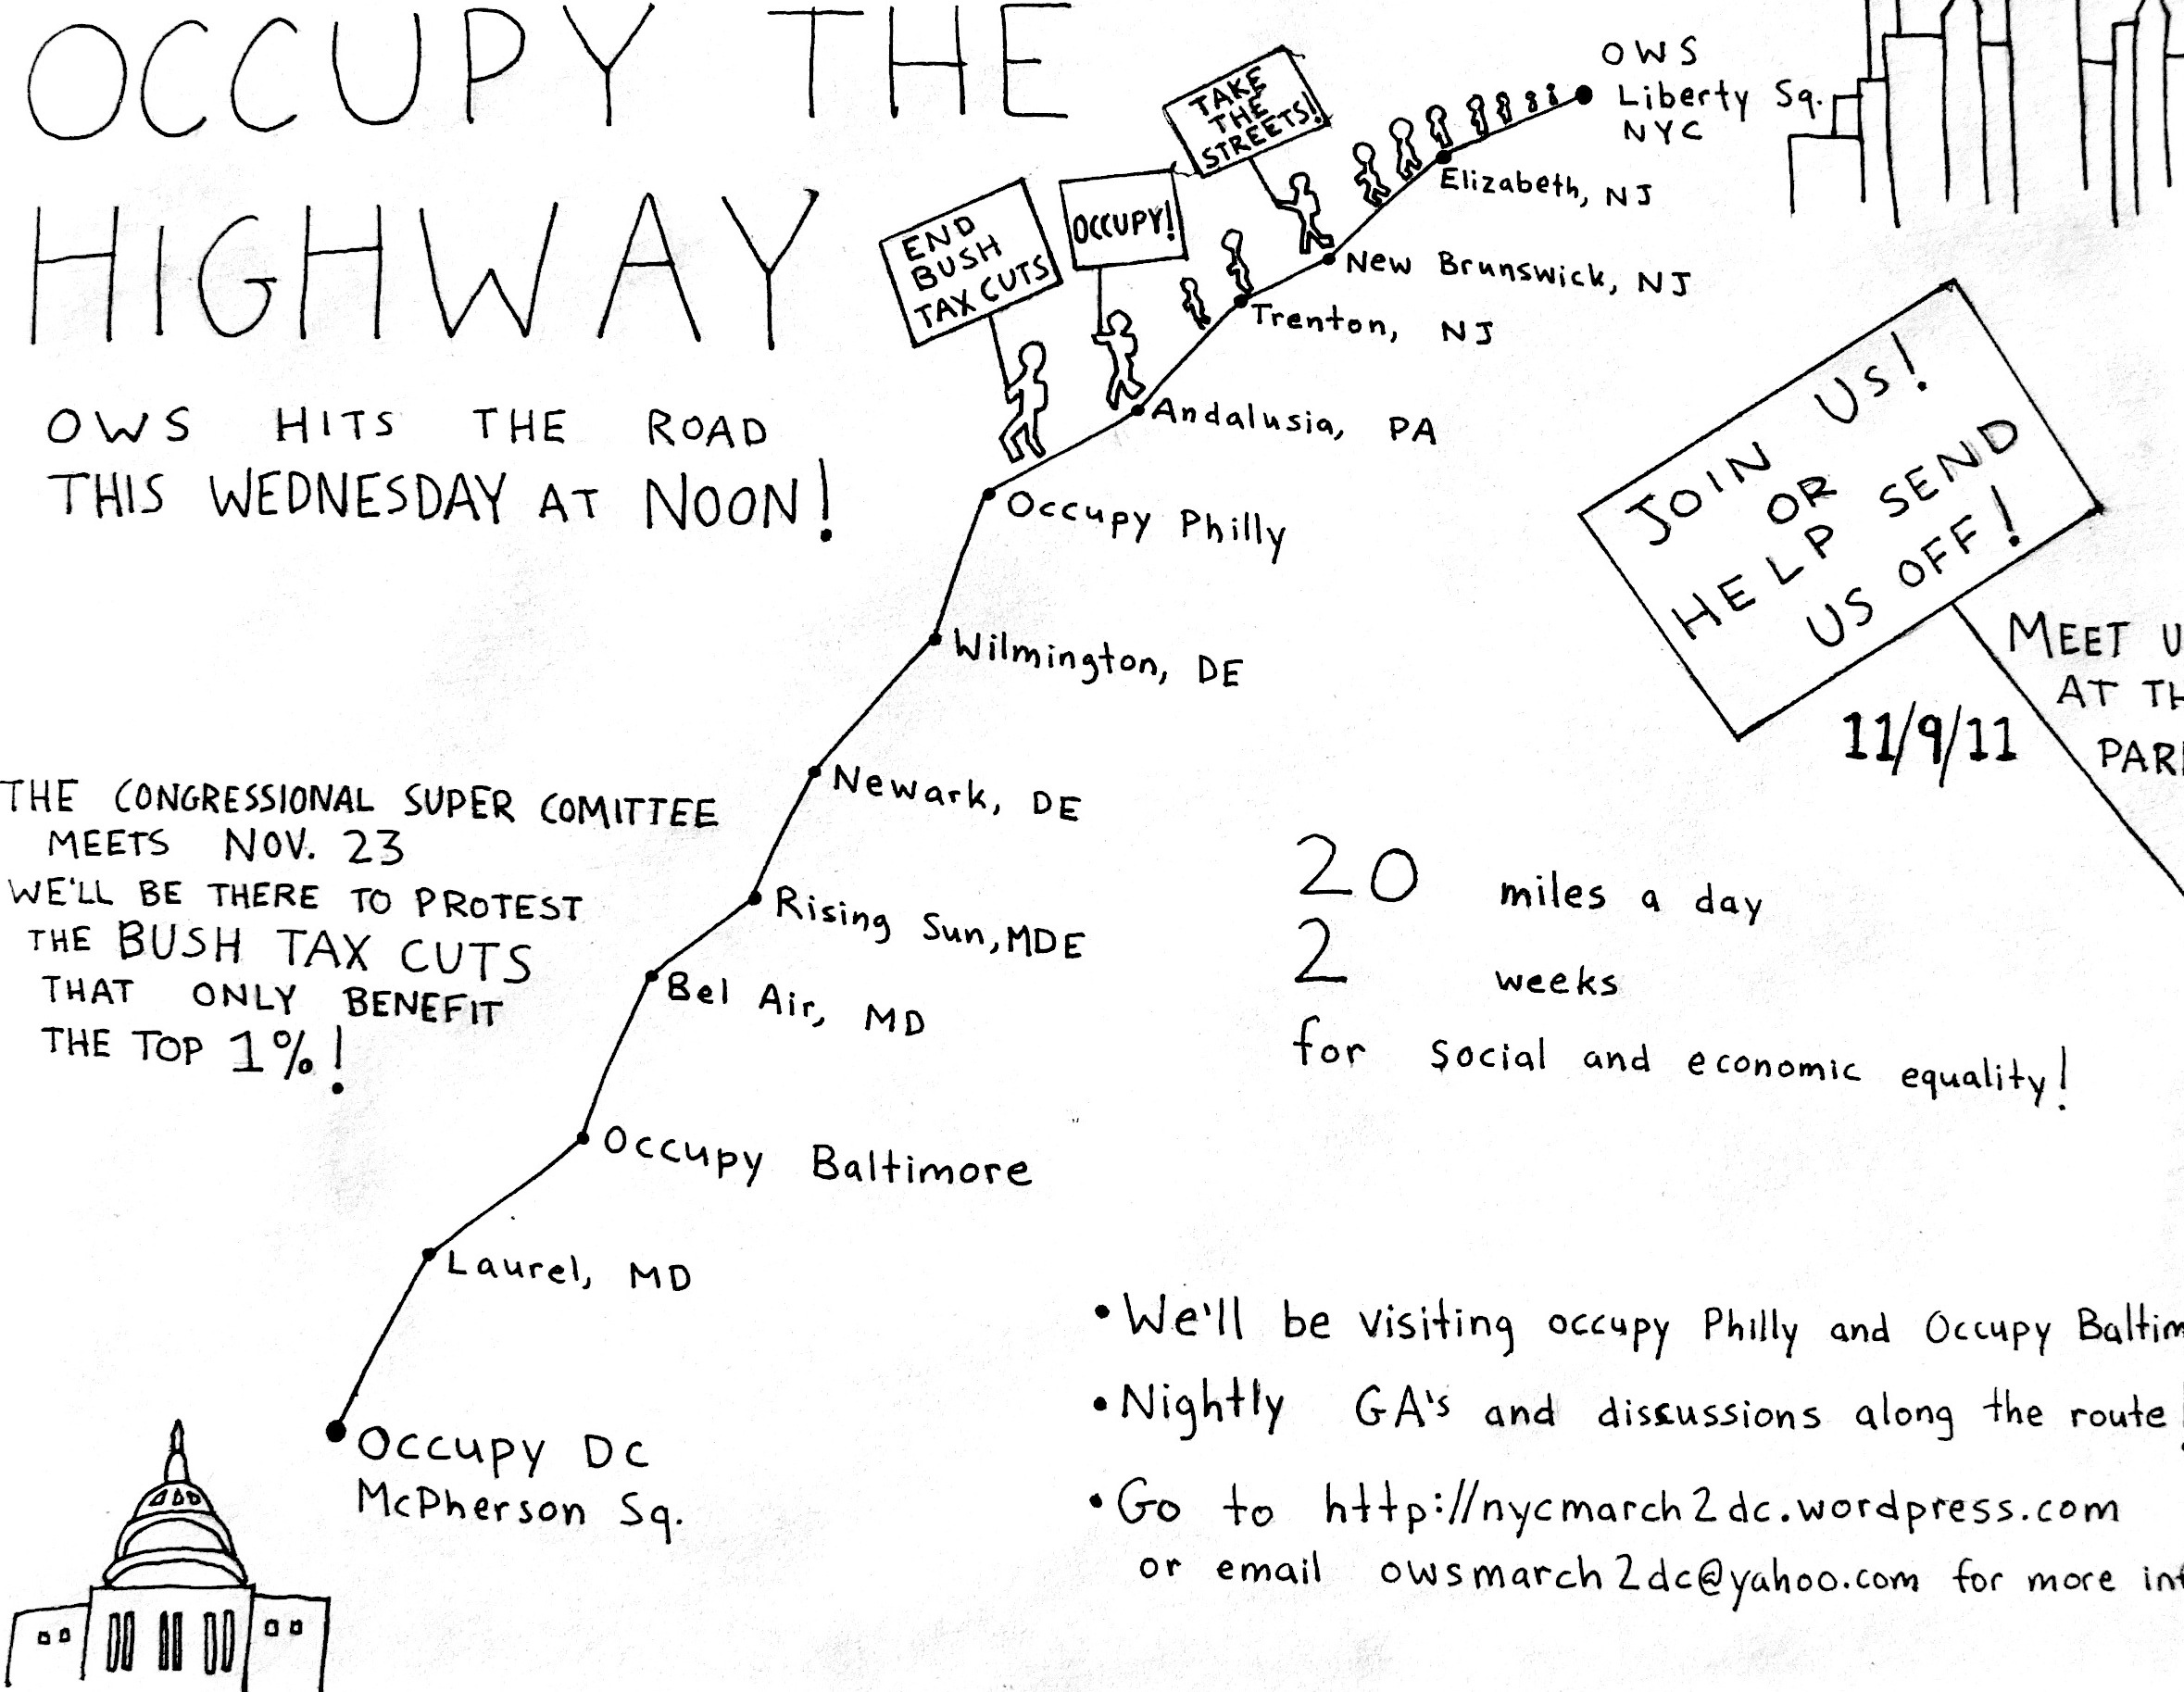 OCCUPY THE
HIGHWAY
OWS HITS THE ROAD
THIS WEDNESDAY AT NOON!
END
BUSH
TAX CUTS
OCCUPY!
TAKE
THE
STREETS!
OWS
Liberty Sq.
NYC
Elizabeth, NJ
New Brunswick, NJ
Trenton, NJ
Andalusia, PA
Occupy Philly
Wilmington, DE
Newark, DE
Rising Sun, MDE
Bel Air, MD
Occupy Baltimore
Laurel, MD
Occupy DC
McPherson Sq.
JOIN US!
OR
HELP SEND
US OFF!
11/9/11
MEET
AT
THE CONGRESSIONAL SUPER COMITTEE
MEETS NOV. 23
WE'LL BE THERE TO PROTEST
THE BUSH TAX CUTS
THAT ONLY BENEFIT
THE TOP 1%!
20 miles a day
2 weeks
for social and economic equality!
• We'll be visiting occupy Philly and Occupy
• Nightly GA's and discussions along the route!
• Go to http://nycmarch2dc.wordpress.com
or email owsmarch2dc@yahoo.com for more